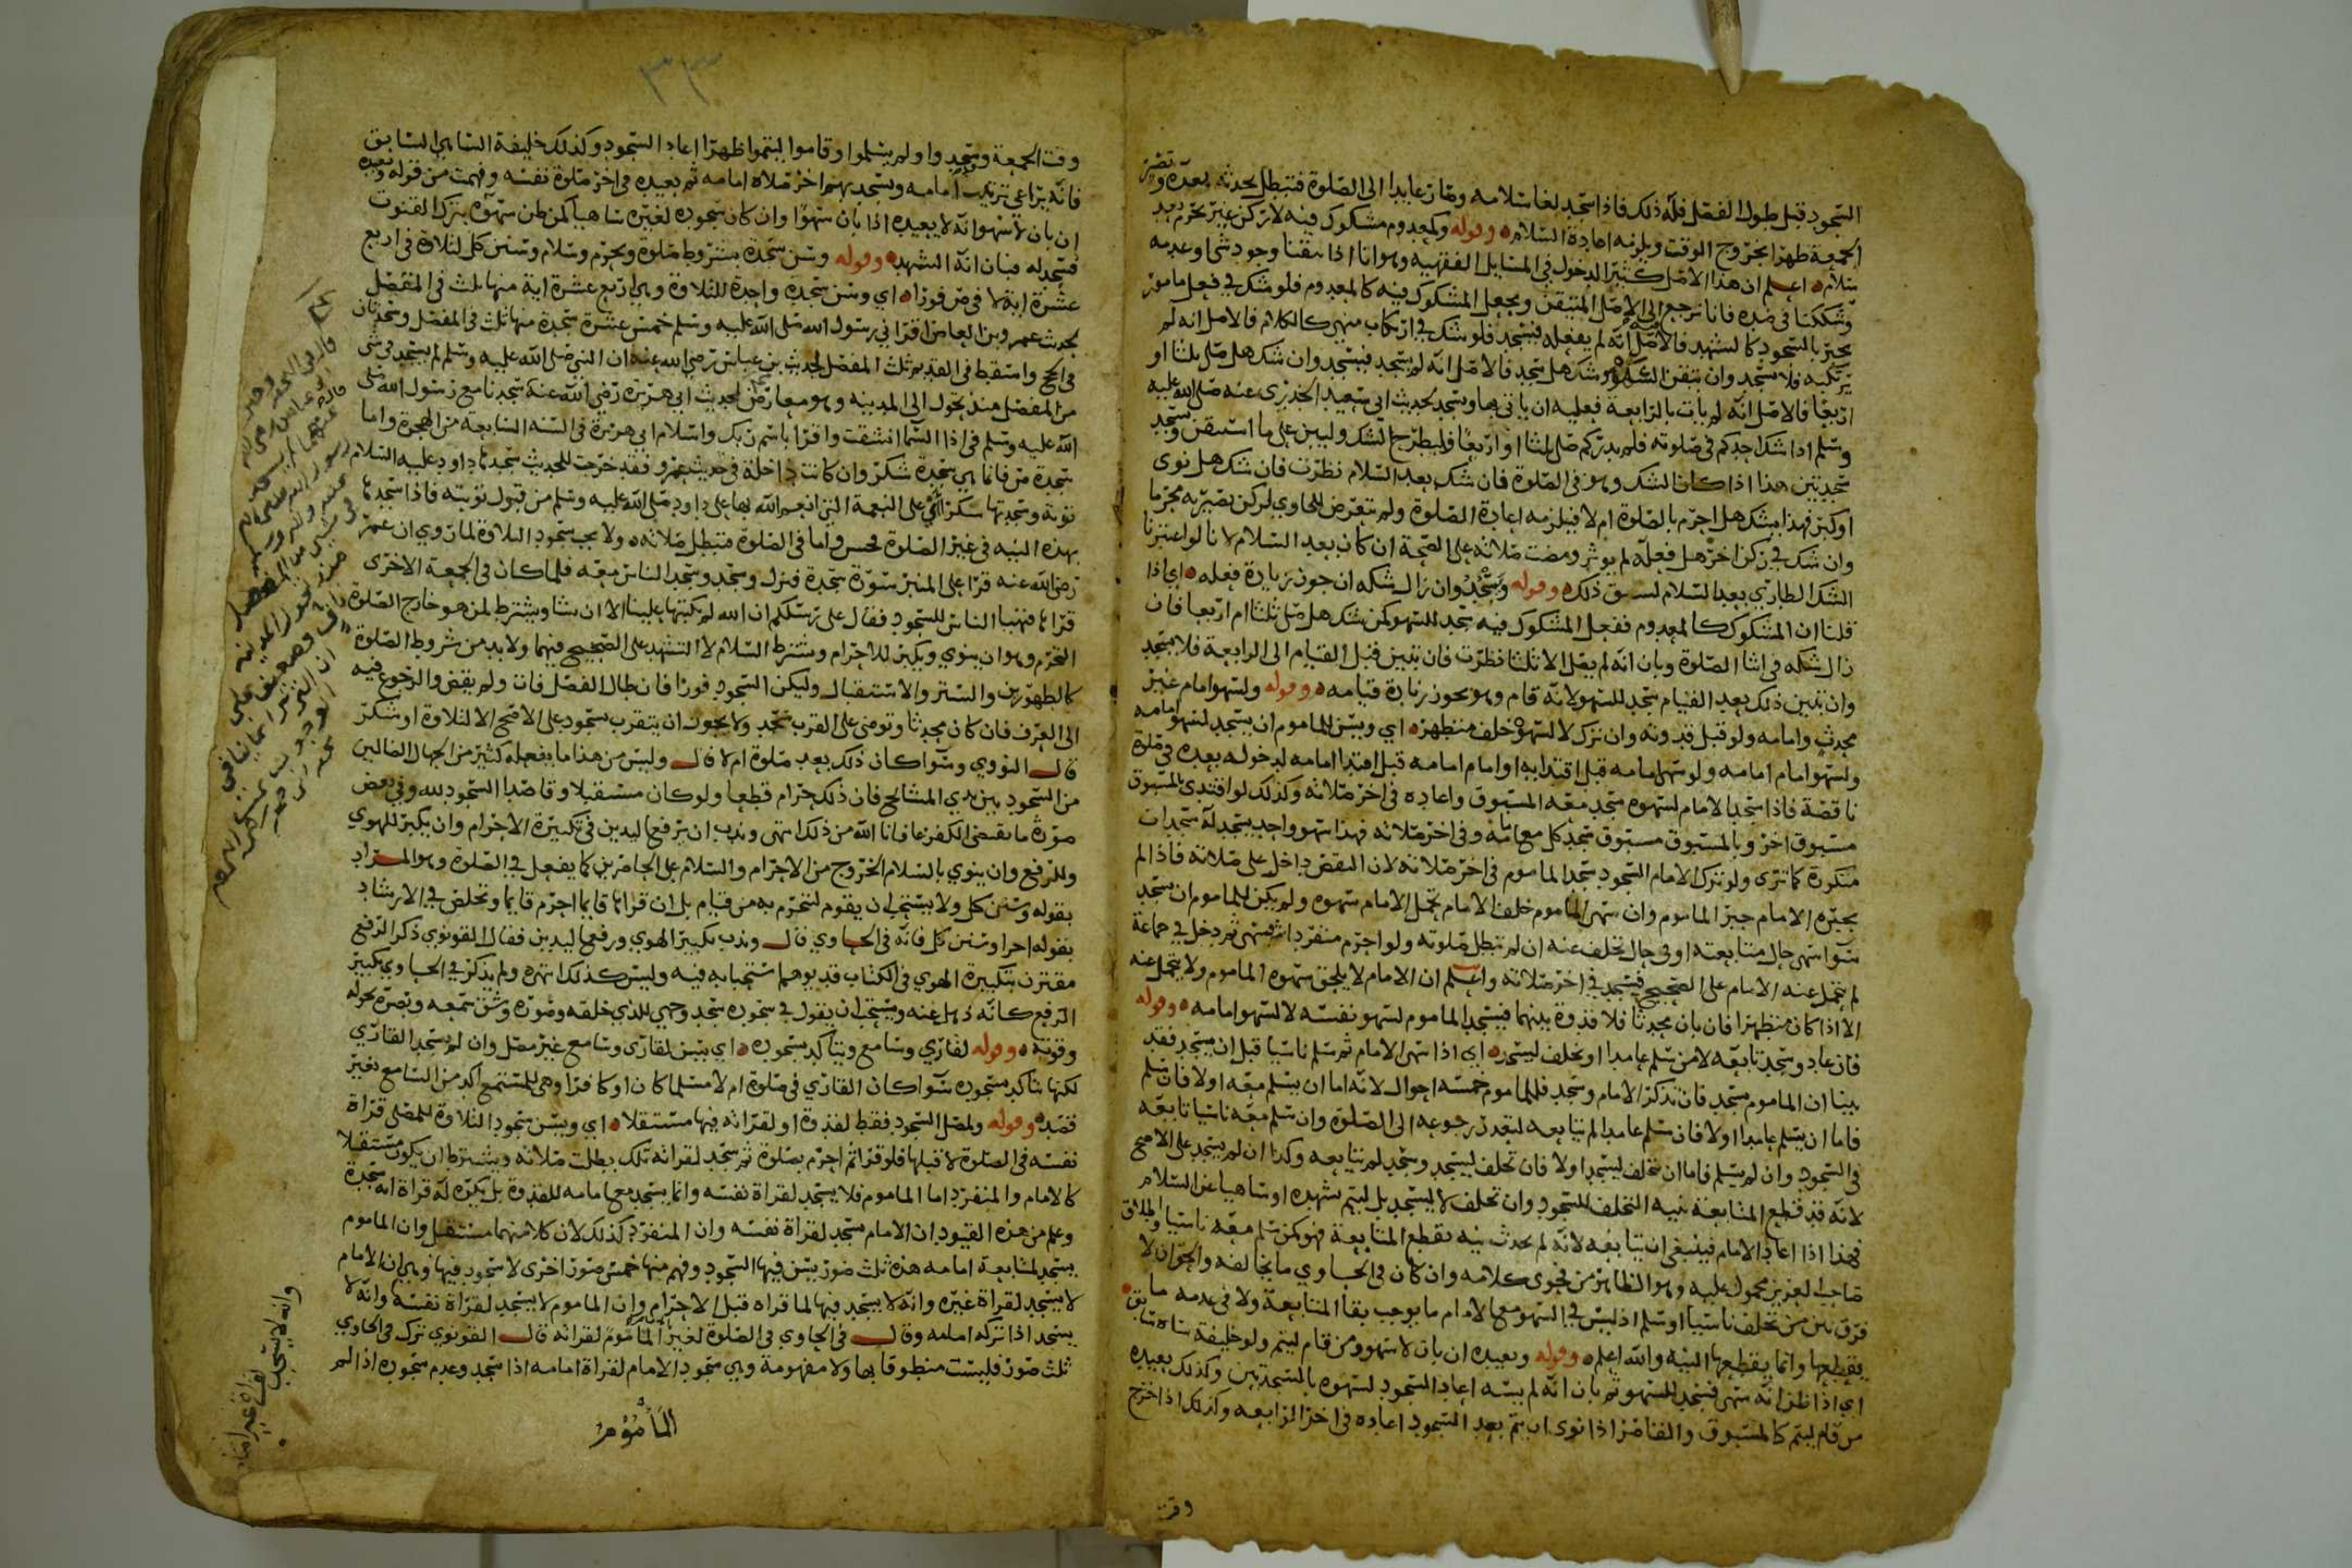 السجود قبل طول الفصل فله ذلك فاذا سجد لغا سلامه وصار عايدا الى الصلوة فتبطل بحدثه بعده وتصير
الجمعة ظهرا بخروج الوقت ويلزمه اعادة السلام ه وقوله وكمعدوم مشكوك فيه لا تركن غير تحرم بعد
سلام ه اعلم ان هذا الاصل كثير الدخول في المسايل الفقهيه وهو انا اذا تيقنا وجود شي او عدمه
وشككنا في ضده فانا نرجع الى الاصل المتيقن ويجعل المشكوك فيه كالمعدوم فلو شك في فعل مامور
يجبر بالسجود كالتشهد فالاصل انه لم يفعله فيسجد فلو شك في ارتكاب منهي كالكلام فالاصل انه لم
يرتكبه فلا يسجد وان تيقن السهو وشك هل سجد فالاصل انه لم يسجد فيسجد وان شك هل صلى ثلثا او
اربعا فالاصل انه لم يات بالرابعة فعليه ان ياتي بها ويسجد لحديث ابي سعيد الخدري عنه صلى الله عليه
وسلم اذا شك احدكم في صلوته فلم يدر كم صلى ثلثا او اربعا فليطرح الشك وليبن على ما استيقن ويسجد
سجدتين هذا اذا كان الشك وهو في الصلوة فان شك بعد السلام نظرت فان شك هل نوى
او كبر فهذا يشك هل احرم بالصلوة ام لا فيلزمه اعادة الصلوة ولم يتعرض للحاوي لركن يصير به محرما
وان شك في ركن اخر هل فعله لم يوثر ومضت صلاته على الصحة ان كان بعد السلام لانا لو اعتبرنا
الشك الطاري بعد السلام لسبق ذلك ه وقوله ويسجد وان زال شكه ان جوز زيادة فعله ه اي اذا
قلنا ان المشكوك كالمعدوم ففعل المشكوك فيه سجد للسهو كمن شك هل صلى ثلثا ام اربعا فان
زال شكه في اثنا الصلوة وبان انه لم يصل الا ثلثا نظرت فان تبين قبل القيام الى الرابعة فلا يسجد
وان تبين ذلك بعد القيام سجد للسهو لانه قام وهو يجوز زيادة قيامه ه وقوله ولسهو امام غير
محدث وامامه ولو قبل قدوته وان ترك لا لسهوه خلف متطهر ه اي ويسن للماموم ان يسجد لسهو امامه
ولسهو امام امامه ولو سها امامه قبل اقتدايه او امام امامه قبل اقتدا امامه لدخوله بعده في صلوة
ناقصة فاذا سجد الامام لسهوه سجد معه المسبوق واعاده في اخر صلاته وكذلك لو اقتدى بالمسبوق
مسبوق اخر وبالمسبوق مسبوق سجد كل مع امامه وفي اخر صلاته فهذا سهو واحد يسجد له سجدات
متكررة كما ترى ولو ترك الامام السجود سجد الماموم في اخر صلاته لان النقص داخل على صلاته فاذا لم
يجبره الامام جبر الماموم وان سهى الماموم خلف الامام تحمل الامام سهوه ولم يكن للماموم ان يسجد
سوا سهى حال متابعته او في حال تخلف عنه ان لم تبطل صلوته ولو احرم منفردا فسهى ثم دخل في جماعة
لم يتحمل عنه الامام على الصحيح فيسجد في اخر صلاته واعلم ان الامام لا يلحق سهوه الماموم ولا يتحمل عنه
الا اذا كان متطهرا فان بان محدثا فلا قدوة بينهما فيسجد الماموم لسهو نفسه لا لسهو امامه ه وقوله
فان عاد وسجد تابعه لا من سلم عامدا او تخلف ليسجد ه اي اذا سهى الامام ثم سلم ناسيا قبل ان يسجد فقد
بينا ان الماموم يسجد فان تذكر الامام وسجد فللماموم خمسة احوال لانه اما ان يسلم معه او لا فان سلم
فاما ان يسلم عامدا او لا فان سلم عامدا لم يتابعه لتعذر رجوعه الى الصلوة وان سلم معه ناسيا تابعه
في السجود وان لم يسلم فاما ان تخلف ليسجد او لا فان تخلف ليسجد وسجد لم يتابعه وكذا ان لم يسجد على الاصح
لانه قد قطع المتابعة بنيه التخلف للسجود وان تخلف لا ليسجد بل ليتم تشهده او ساهيا عن السلام
فهذا اذا اعاد الامام فينبغي ان يتابعه لانه لم يحدث نيه تقطع المتابعة فهو كمن سلم معه ناسيا واطلاق
صاحب العزيز محمول عليه وهو الظاهر من فحوى كلامه وان كان في الحاوي ما يخالفه والجواز لا
فرق بين من تخلف ناسيا او سلم اذ ليس في السهو مع الامام ما يوجب بقا المتابعة ولا في عدمه ما
يقطعها وانما يقطعها النيه والله اعلم ه وقوله ويعيده ان بان لا سهو ومن قام ليتم ولو خليفة ساه سابق ه
اي اذا ظن انه سهى فسجد للسهو ثم بان انه لم يسه اعاد السجود لسهوه بالسجدتين وكذلك يعيده
من قام ليتم كالمسبوق والقاصر اذا نوى ان يتم بعد السجود اعاده في اخر الرابعه وكذلك اذا خرج
وقت
٣٣
وقت الجمعة وسجدوا ولم يسلموا وقاموا ليتموا ظهرا اعاد السجود وكذلك خليفة الساهي السابق
فانه يراعي ترتيب امامه ويسجد بهم اخر صلاة امامه ثم يعيده في اخر صلوة نفسه وفهمت من قوله ويعيده
ان بان لا سهو انه لا يعيده اذا بان سهوا وان كان سجوده لغيره ساهيا كمن ظن سهوه بترك القنوت
فسجد له فبان انه التشهد ه وقوله وسن سجدة بشروط صلوة وتحرم وسلام وسنن كل لتلاوة في اربع
عشرة اية لا في ص فورا ه اي وسن سجدة واحدة للتلاوة وهي اربع عشرة اية منها ثلث في المفصل
لحديث عمرو بن العاص اقراني رسول الله صلى الله عليه وسلم خمس عشرة سجدة منها ثلث في المفصل وسجدتان
في الحج واسقط في القديم ثلث المفصل لحديث بن عباس رضي الله عنه ان النبي صلى الله عليه وسلم لم يسجد في شي
من المفصل منذ تحول الى المدينه وهو معارض لحديث ابي هريرة رضي الله عنه سجدنا مع رسول الله صلى
الله عليه وسلم في اذا السما انشقت واقرا باسم ربك واسلام ابي هريرة في السنه السابعة من الهجرة واما
سجدة ص فانما هي سجدة شكر وان كانت داخلة في حديث عمرو فقد خرجت للحديث سجدها داود عليه السلام
توبة وسجدتها شكرا اي على النعمة التي انعم الله بها على داود صلى الله عليه وسلم من قبول توبته فاذا سجدها
بهذه النيه في غير الصلوة فحسن واما في الصلوة فتبطل صلاته ه ولا يجب سجود التلاوة لما روي ان عمر
رضي الله عنه قرا على المنبر سورة سجدة فنزل وسجد وسجد الناس معه فلما كان في الجمعة الاخرى
قراها فتهيا الناس للسجود فقال على رسلكم ان الله لم يكتبها علينا الا ان نشا ويشترط لمن هو خارج الصلوة
التحرم وهو ان ينوي ويكبر للاحرام ويشترط السلام لا التشهد على الصحيح فيهما ولا بد من شروط الصلوة
كالطهورين والستر والاستقبال وليكن السجود فورا فان طال الفصل فات ولم يقض والرجوع فيه
الى العرف فان كان محدثا وتوضى على القرب سجد ولا يجوز ان يتقرب بسجود على الاصح الا لتلاوة او شكر
قال النووي وسوا كان ذلك بعد صلوة ام لا قال وليس من هذا ما يفعله كثير من الجهال الضالين
من السجود بين يدي المشايخ فان ذلك حرام قطعا ولو كان مستقبلا وقاصدا السجود لله وفي بعض
صوره ما يقتضي الكفر عافانا الله من ذلك انتهى وندب ان يرفع اليدين في تكبيرة الاحرام وان يكبر للهوي
وللرفع وان ينوي بالسلام الخروج من الاحرام والسلام على الحاضرين كما يفعل في الصلوة وهو المراد
بقوله وسنن كل ولا يستحب ان يقوم لتحرم به من قيام بل ان قراها قايما احرم قايما وتخلص في الارشاد
بقوله اخرا وسنن كل فانه في الحاوي قال وندب تكبير الهوي ورفع اليدين فقال القونوي ذكر الرفع
مقترن بتكبيرة الهوي في الكتاب قد يوهم استحبابه فيه وليس كذلك انتهى ولم يذكر في الحاوي تكبير
الرفع كانه ذهل عنه ويستحب ان يقول في سجوده سجد وجهي للذي خلقه وصوره وشق سمعه وبصره بحوله
وقوته ه وقوله لقاري وسامع ويتاكد بسجوده ه اي يسن لقاري وسامع غير مصل وان لم يسجد القاري
لكنها تتاكد بسجوده سوا كان القاري في صلوة ام لا مسلما كان او كافرا وهي للمستمع اكد من السامع بغير
قصد ه وقوله ولمصل السجود فقط لقدوة او لقراته فيها مستقلا ه اي ويسن سجود التلاوة للمصلي قراة
نفسه في الصلوة لا قبلها فلو قرا ثم احرم بصلوة ثم سجد لقراته تلك بطلت صلاته ويشترط ان يكون مستقلا
كالامام والمنفرد اما الماموم فلا يسجد لقراة نفسه وانما يسجد مع امامه للقدوة بل يكره له قراة اية سجدة
وعلم من هذه القيود ان الامام يسجد لقراة نفسه وان المنفرد كذلك لان كلا منهما مستقل وان الماموم
يسجد لمتابعة امامه هذه ثلث صور يسن فيها السجود وفهم منها خمس صور اخرى لا سجود فيها وهي ان الامام
لا يسجد لقراة غيره وانه لا يسجد فيها لما قراه قبل الاحرام وان الماموم لا يسجد لقراة نفسه وانه لا
يسجد اذا تركه امامه وقال في الحاوي في الصلوة لغير الماموم لقراته قال القونوي ترك في الحاوي
ثلث صور فليست منطوقا بها ولا مفهومة وهي سجود الامام لقراة امامه اذا سجد وعدم سجوده اذا لم
المأموم
وانه لا يسجد
لقراة غير امامه